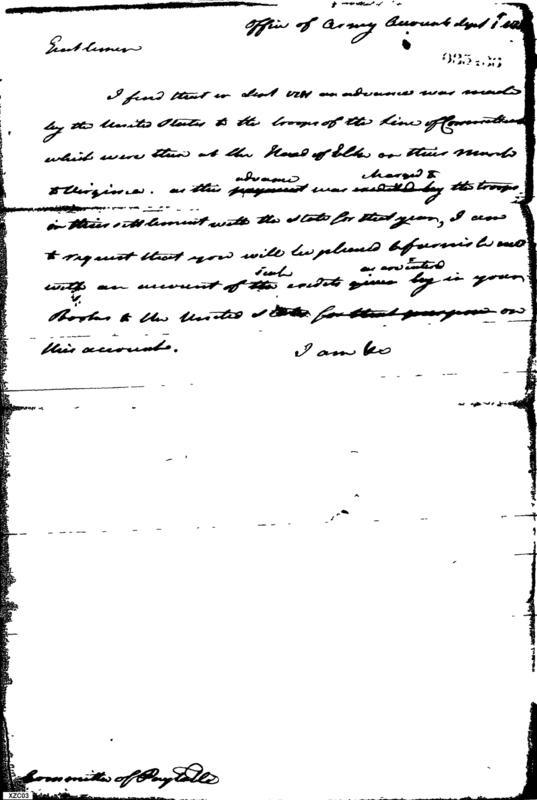 Office of Army Accounts Sept 1st
Gentlemen
095436
I find that in Sept 1781 an advance was made
by the United States to the troops of the Line of Connecticut
which were then at the Head of Elk on their March
advance charged to
to Virginia. as this payment was credited by the troops
in their settlement with the State for that year, I am
to request that you will be pleased to furnish me
such as are entered
with an account of the credits given by in your
Books to the United States for that purpose on
this account.
I am &c
Committee of Pay Table
XZC03